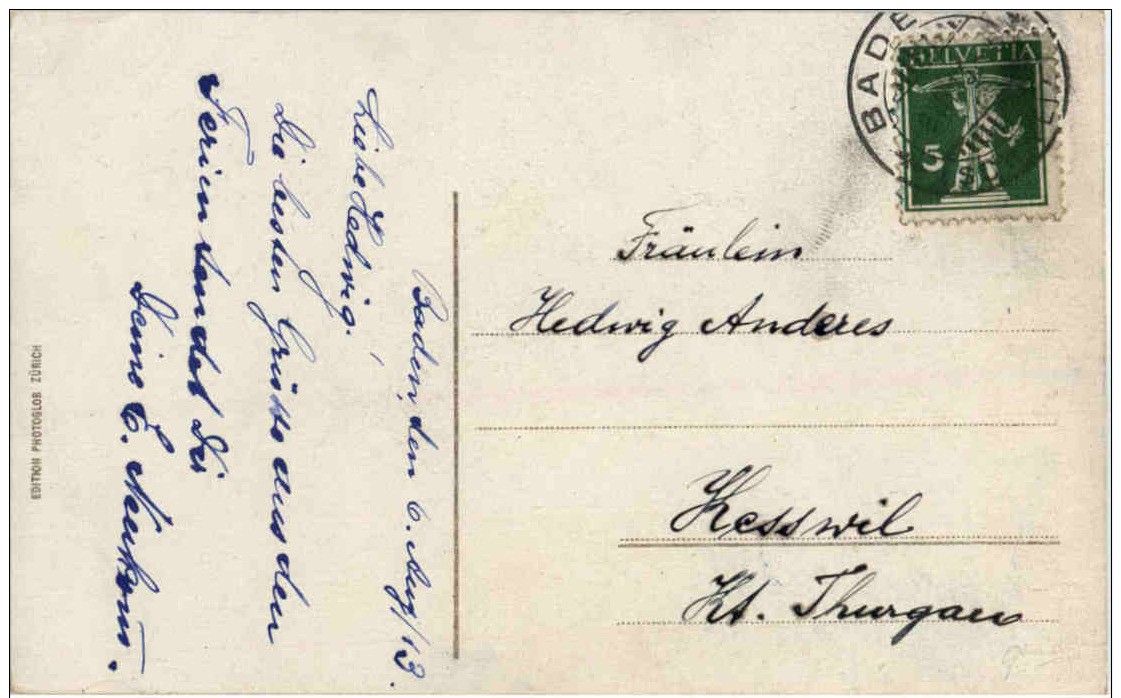 Baden, den 6. Aug/13.
Liebe Hedwig!
Die besten Grüsse aus den
Ferien sendet Dir
Deine E. Neukom.
EDITION PHOTOGLOB ZÜRICH
BADE
HELVETIA
5
Fräulein
Hedwig Anderes
Kesswil
Kt. Thurgau